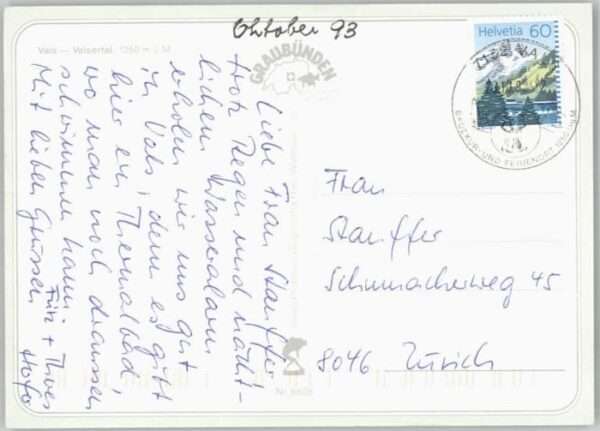 Oktober 93
Vals – Valsertal, 1250 m ü. M.
GRAUBÜNDEN
Helvetia 60
7132 VALS
BADEKUR- UND FERIENORT 1250 M ü.M
Liebe Frau Stauffer
trotz Regen und nächt-
lichem Wasseralarm
erholen wir uns gut
in Vals, denn es gibt
hier ein Thermalbad,
wo man noch draussen
schwimmen kann.
Mit lieben Grüssen
Fritz + Thres
Hofer
Frau
Stauffer
Schumacherweg 45
8046 Zürich
Nr.